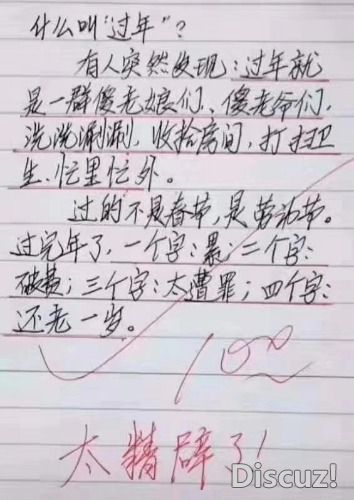 什么叫“过年”？
有人突然发现：过年就
是一群傻老娘们、傻老爷们，
洗洗涮涮，收拾房间，打扫卫
生、忙里忙外。
过的不是春节，是劳动节。
过完年了，一个字：累；二个字：
破费；三个字：太遭罪；四个字：
还老一岁。
100
太精辟了！
Discuz!